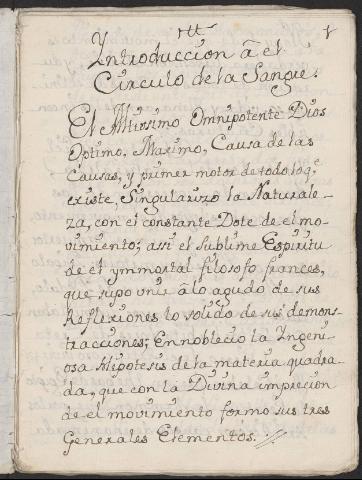 Yntroduccion â el
Circulo de la Sangre.
El Altissimo Omnipotente Dios
Optimo, Maximo, Causa de las
Causas, y primer motor de todo lo q.e
existe, Singularizo la Naturale-
za, con el constante Dote de el mo-
vimiento; assi el Sublime Espiritu
de el ymmortal filosofo frances,
que supo unir â lo agudo de sus
Reflexiones lo solido de sus demons
tracciones; Ennoblecio la Yngeni-
osa Hipotesis de la materia quadra-
da, que con la Divina impresion
de el movimiento formo sus tres
Generales Elementos.